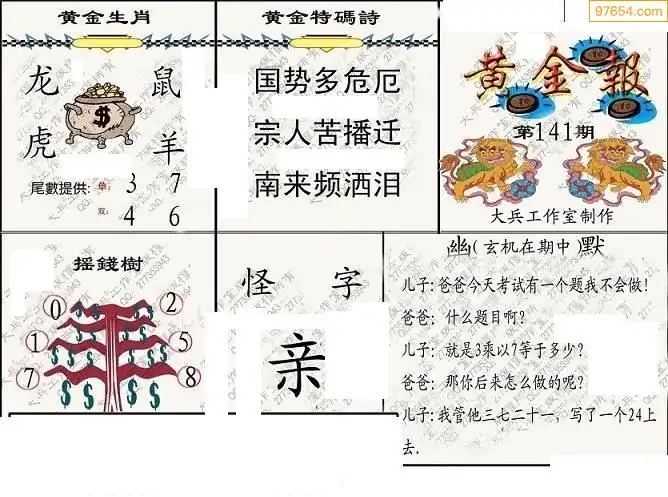 97654.com
黄金生肖
龙 鼠
虎 羊
尾數提供: 单: 3 7
双: 4 6
黄金特碼詩
国势多危厄
宗人苦播迁
南来频洒泪
黄金報
第141期
大兵工作室制作
摇錢樹
0 2
1 5
7 8
怪 字
亲
幽(玄机在期中)默
儿子:爸爸今天考试有一个题我不会做!
爸爸: 什么题目啊?
儿子: 就是3乘以7等于多少?
爸爸: 那你后来怎么做的呢?
儿子:我管他三七二十一, 写了一个24上
去.